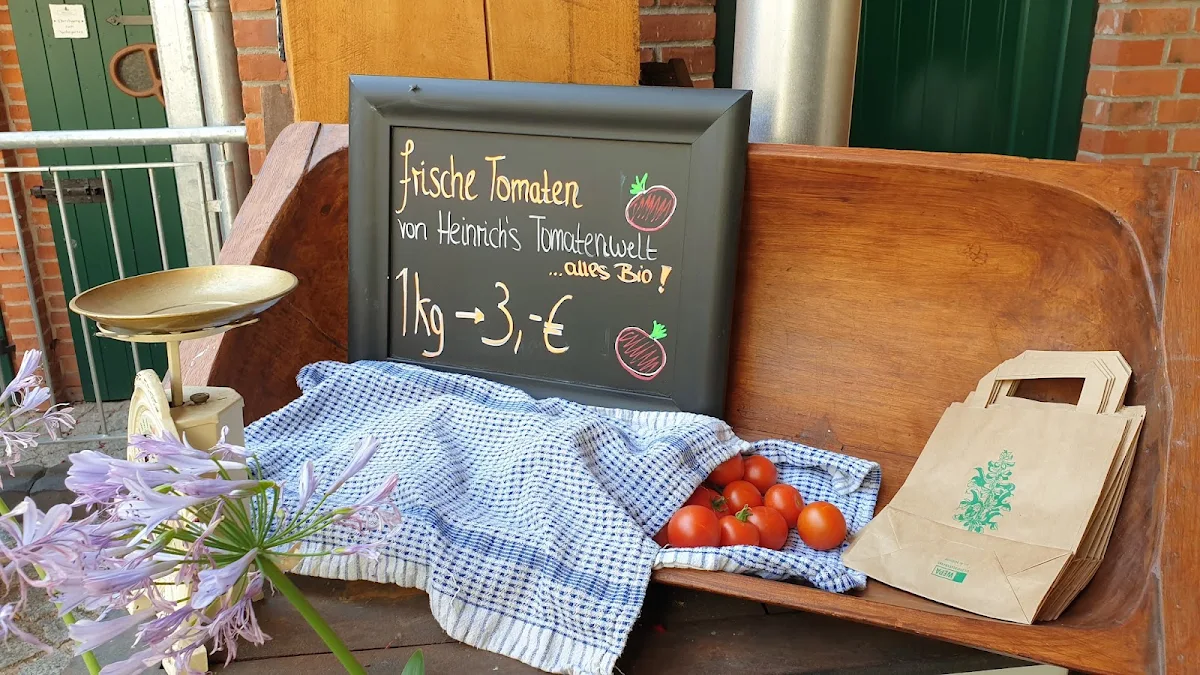 frische Tomaten
von Heinrich's Tomatenwelt
...alles Bio!
1kg → 3,-€